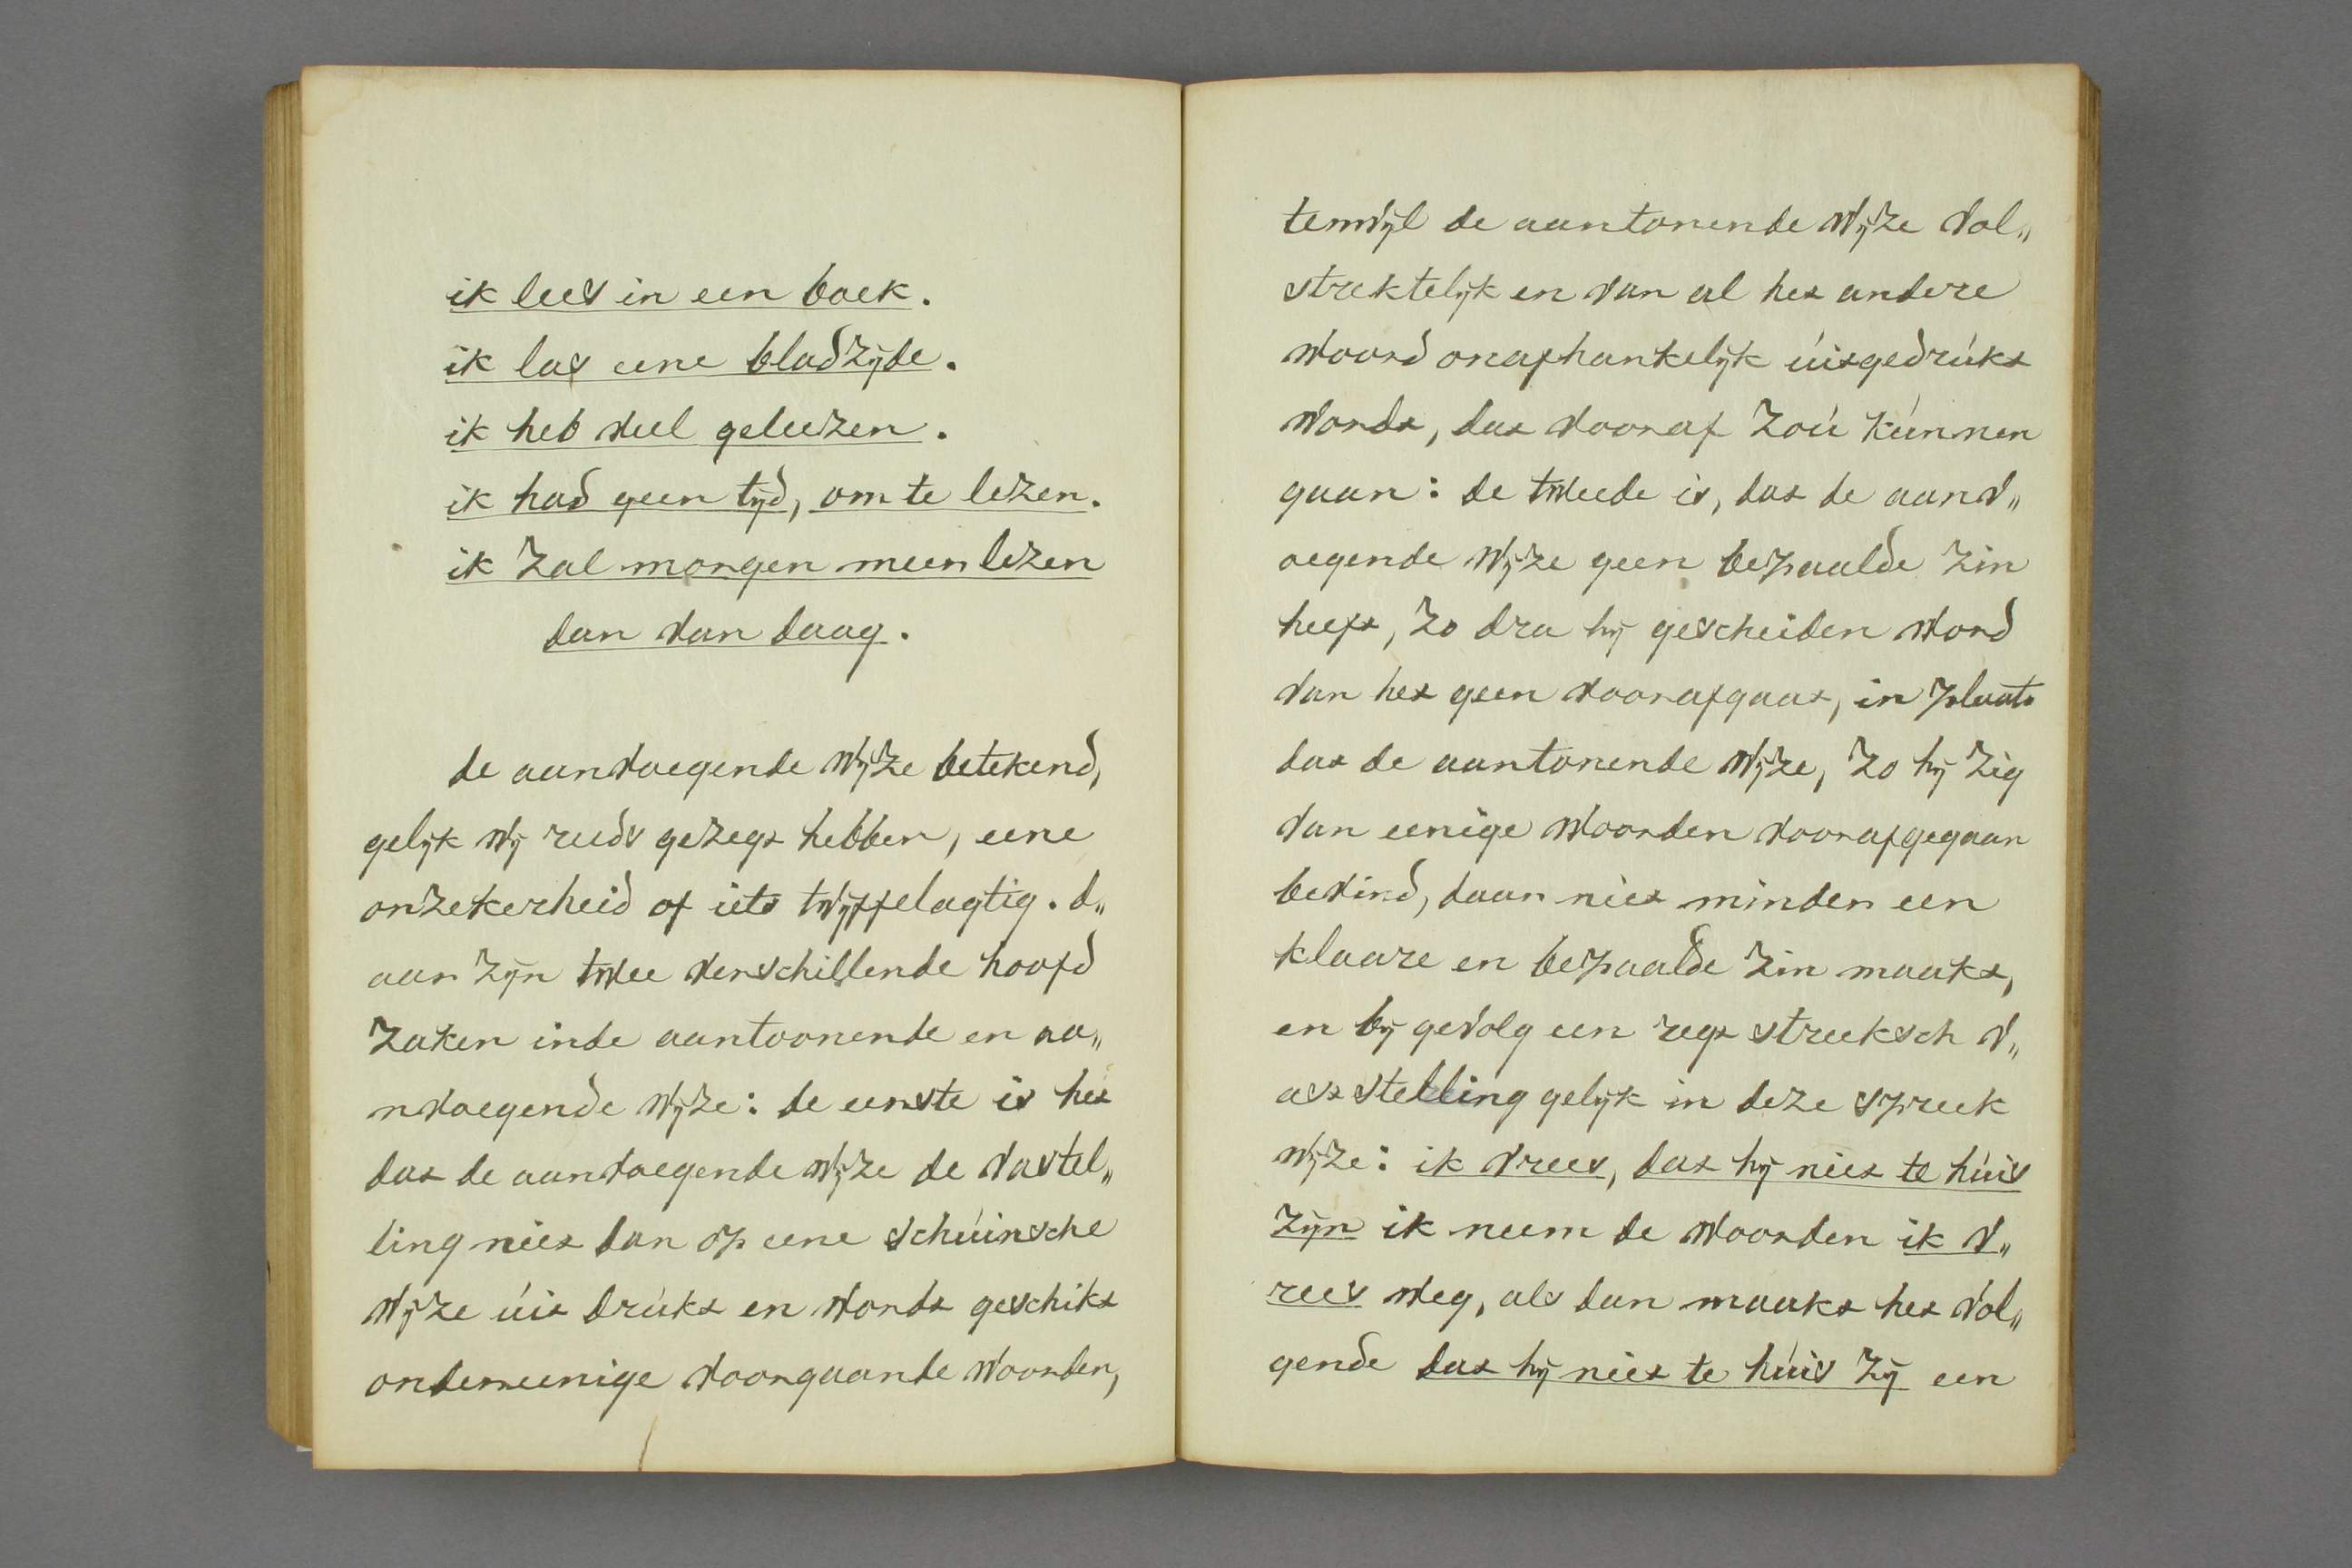 ik lees in een boek.
ik las eene bladzÿde.
ik heb veel geleezen.
ik had geen tÿd, om te lezen.
ik zal morgen meer lezen
dan van daag.
de aanvoegende wÿze betekend,
gelÿk wÿ reeds gezegt hebben, eene
onzekerheid of iets twÿffelagtig. d„
aar zÿn twee verschillende hoofd
zaken inde aantoonende en aa„
nvoegende wÿze: de eerste is het
dat de aanvoegende wÿze de vastel„
ling niet dan op eene schúinsche
wÿze úit drúkt en wordt geschikt
ondereenige voorgaande woorden,
terwÿl de aantonende wÿze vol„
strektelÿk en van al het andere
woord onafhankelÿk úitgedrúkt
wordt, dat vooraf zoú kúnnen
gaan: de tweede is, dat de aanv„
oegende wÿze geen bepaalde zin
heeft, zo dra hÿ gescheiden word
van het geen voorafgaat, in plaats
dat de aantonende wÿze, zo hÿ zig
van eenige woorden voorafgegaan
bevind, daar niet minder een
klaare en bepaalde zin maakt,
en bÿ gevolg een regt streeksch v„
aststelling gelÿk in deze spreek
wÿze: ik vrees, dat hÿ niet te húis
zÿn ik neem de woorden ik v„
rees weg, als dan maakt het vol„
gende dat hÿ niet te húis zÿ een